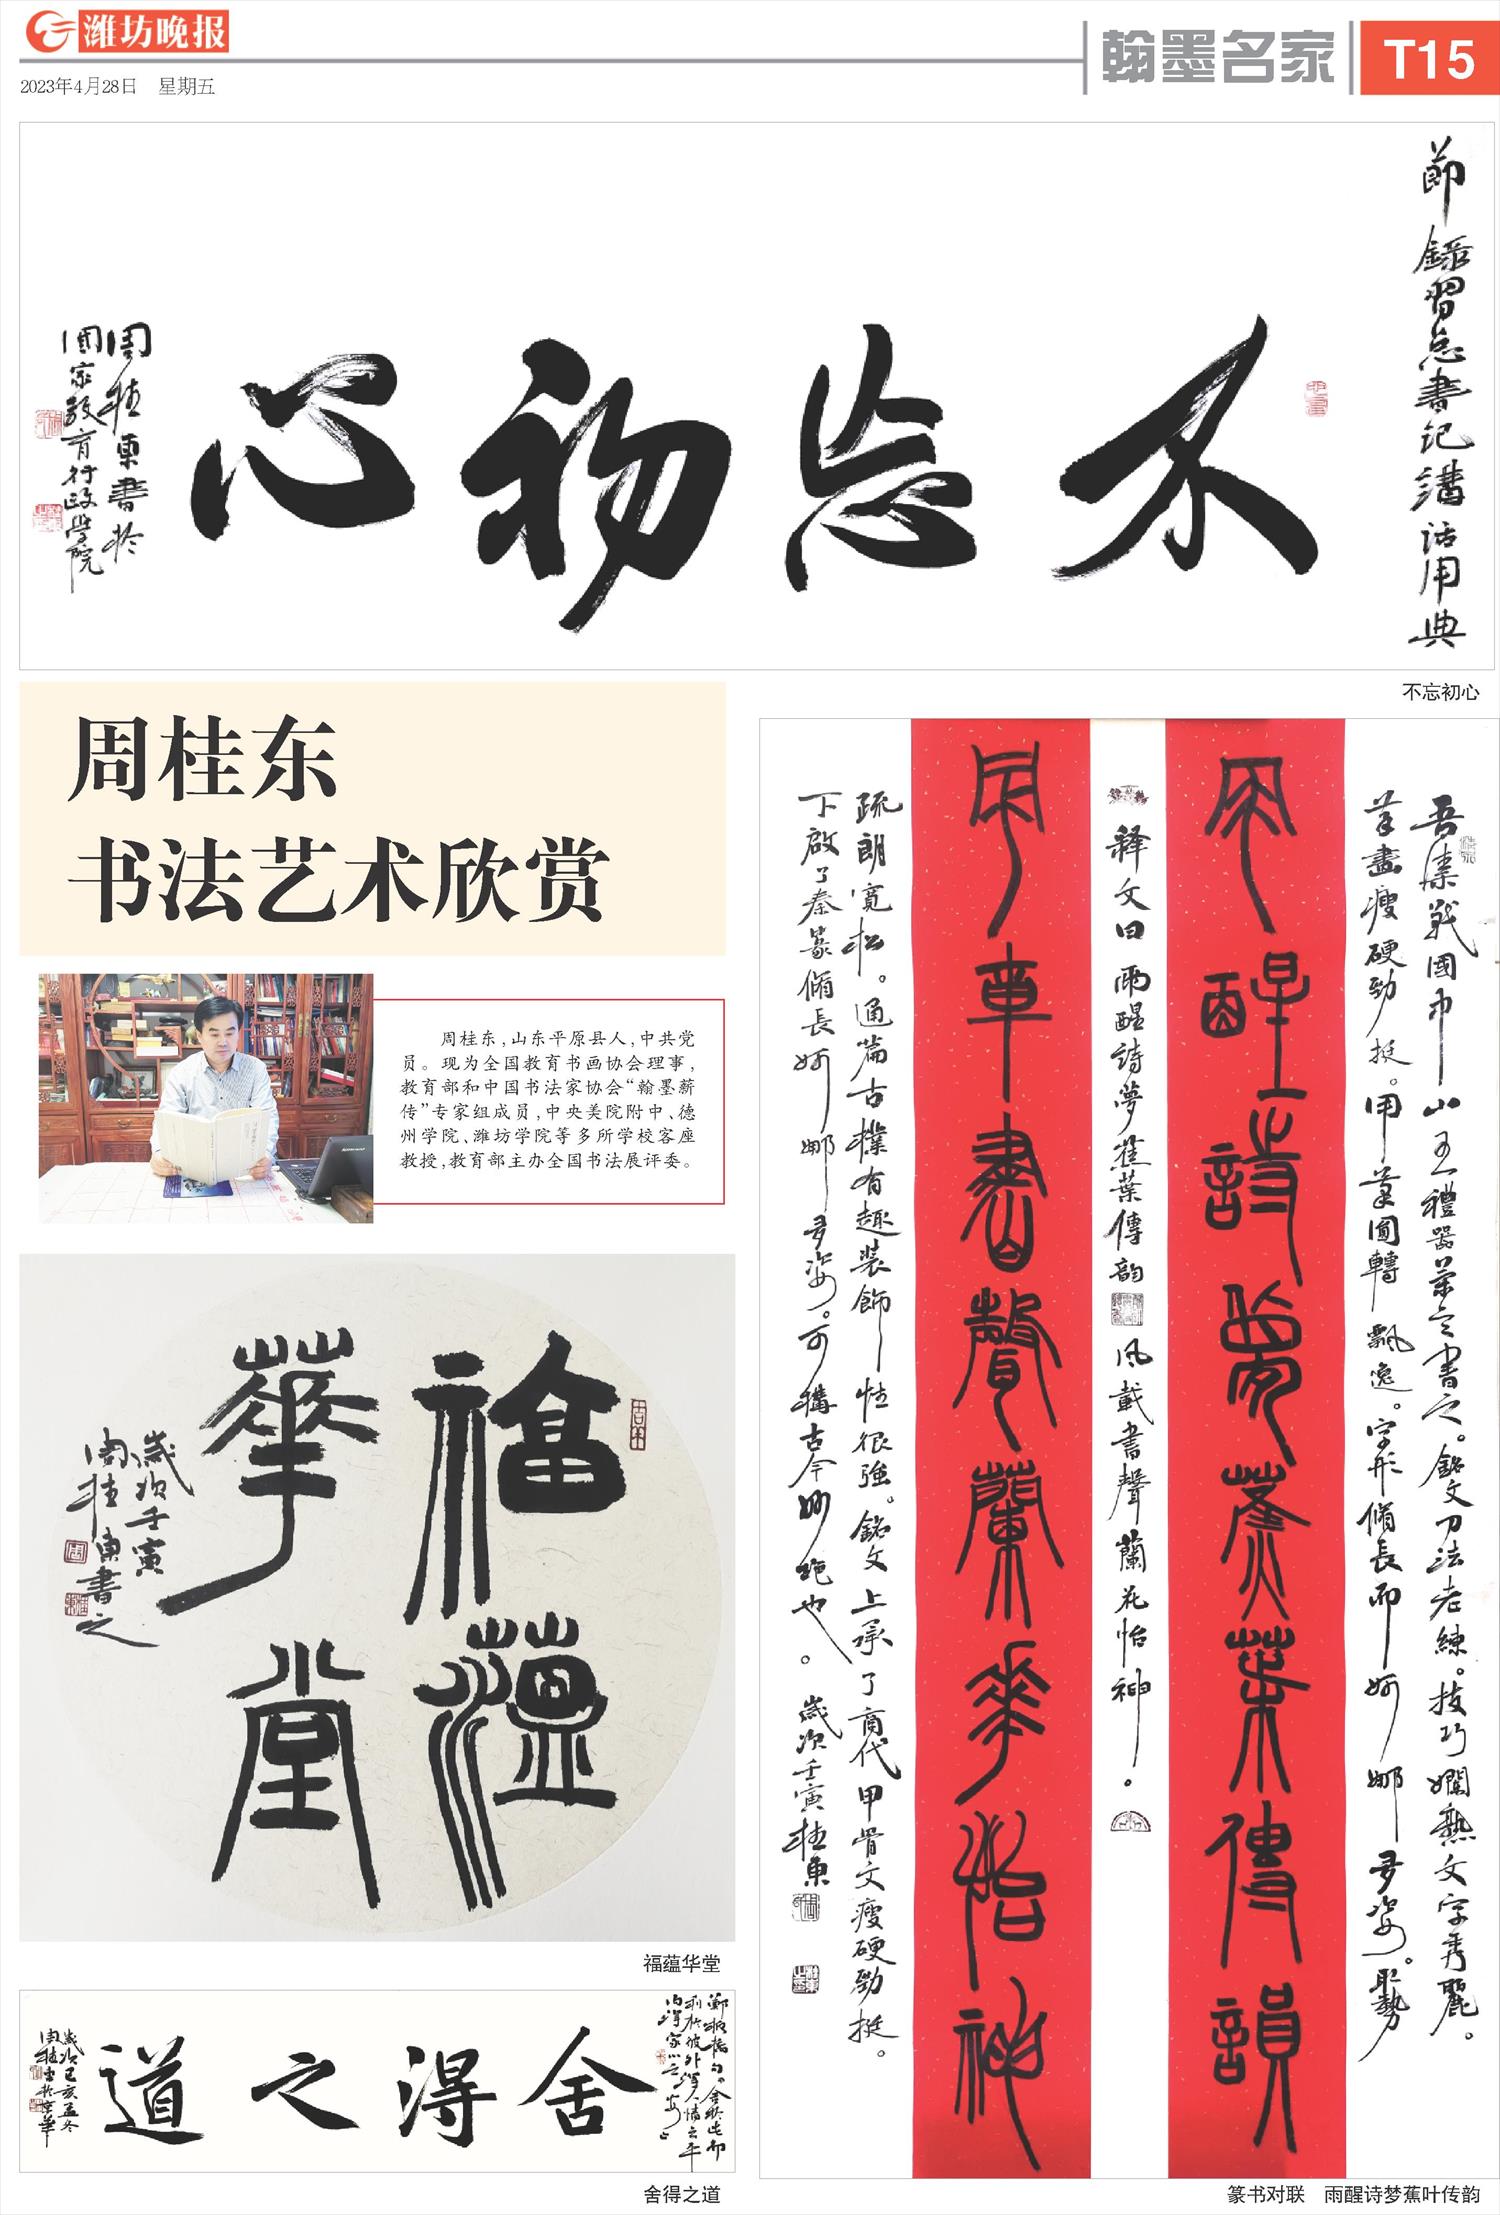 潍坊晚报
2023年4月28日 星期五
翰墨名家
T15
節錄習总書记講话用典
不忘初心
周桂東書於
國家教育行政学院
不忘初心
周桂东
书法艺术欣赏
周桂东，山东平原县人，中共党
员。现为全国教育书画协会理事，
教育部和中国书法家协会“翰墨薪
传”专家组成员，中央美院附中、德
州学院、潍坊学院等多所学校客座
教授，教育部主办全国书法展评委。
福蕴華堂
歲次壬寅
周桂東書之
福蕴华堂
舍得之道
歲次己亥孟冬
周桂東於京華
舍得之道
吾集戰國中山王禮器篆意書之。銘文刀法老練。技巧嫻熟文字秀麗。
筆畫瘦硬勁挺。用筆圓轉飄逸。字形脩長而婀娜多姿。
雨醒詩夢蕉葉傳韻
释文曰 雨醒詩夢蕉葉傳韵
风載書聲蘭花怡神。
風載書聲蘭華怡神
疏朗寬松。通篇古樸有趣装飾性很強。銘文上承了商代甲骨文瘦硬勁挺。
下啟了秦篆脩長婀娜多姿。可構古今妙绝也。歲次壬寅桂東
篆书对联 雨醒诗梦蕉叶传韵